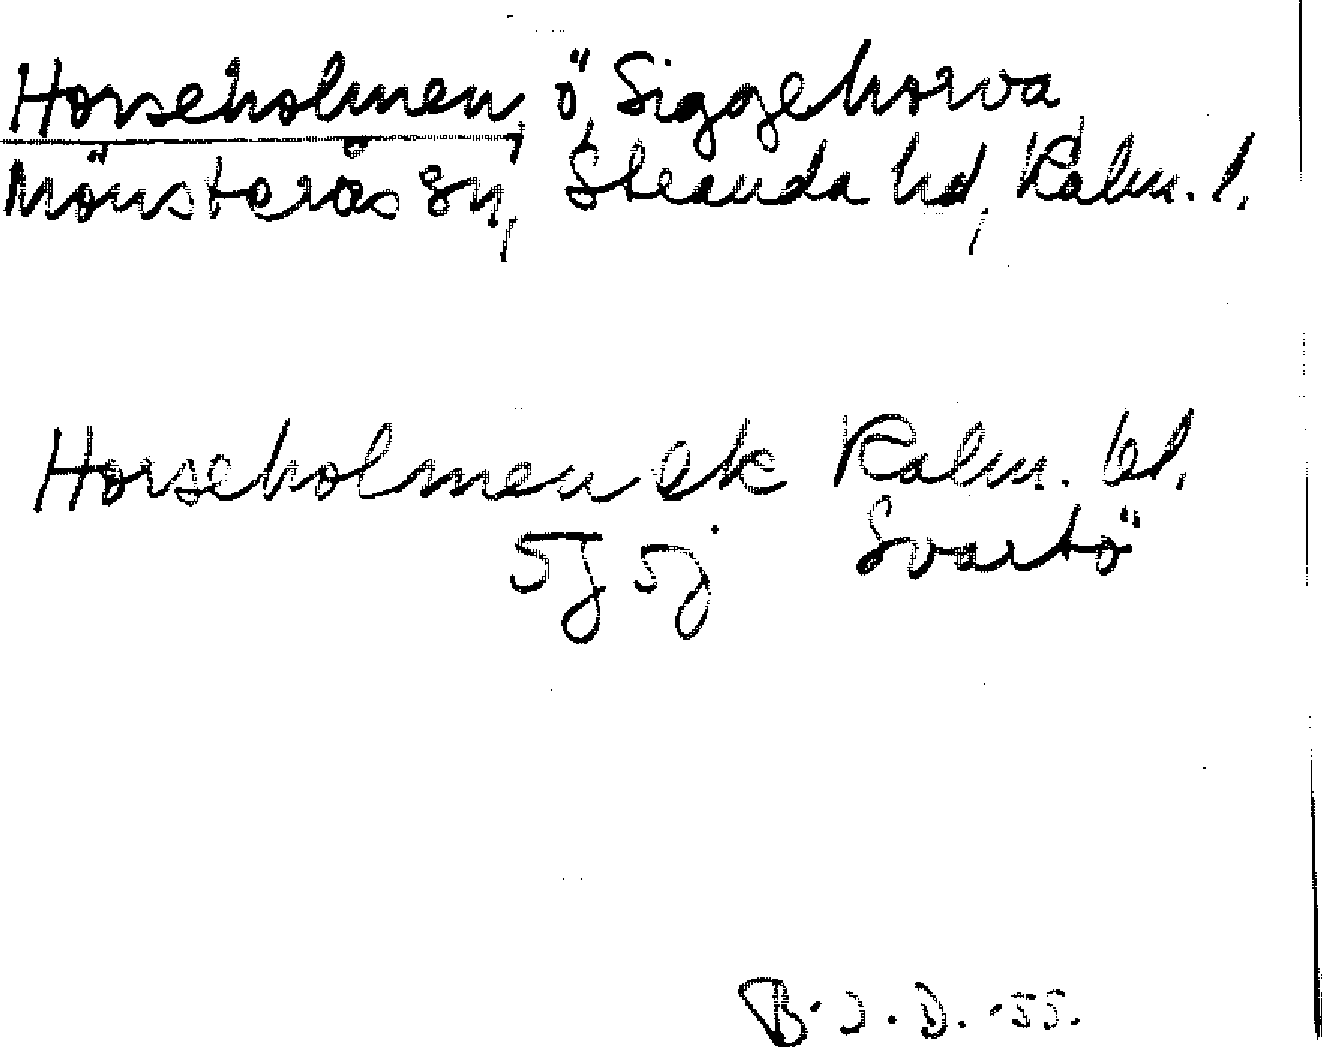 Horseholmen, ö, Siggehorva
Mönsterås sn, Stranda hd, Kalm. l.
Horseholmen ek Kalm. bl.
5J 5j Svartö
B.J.D. -55.